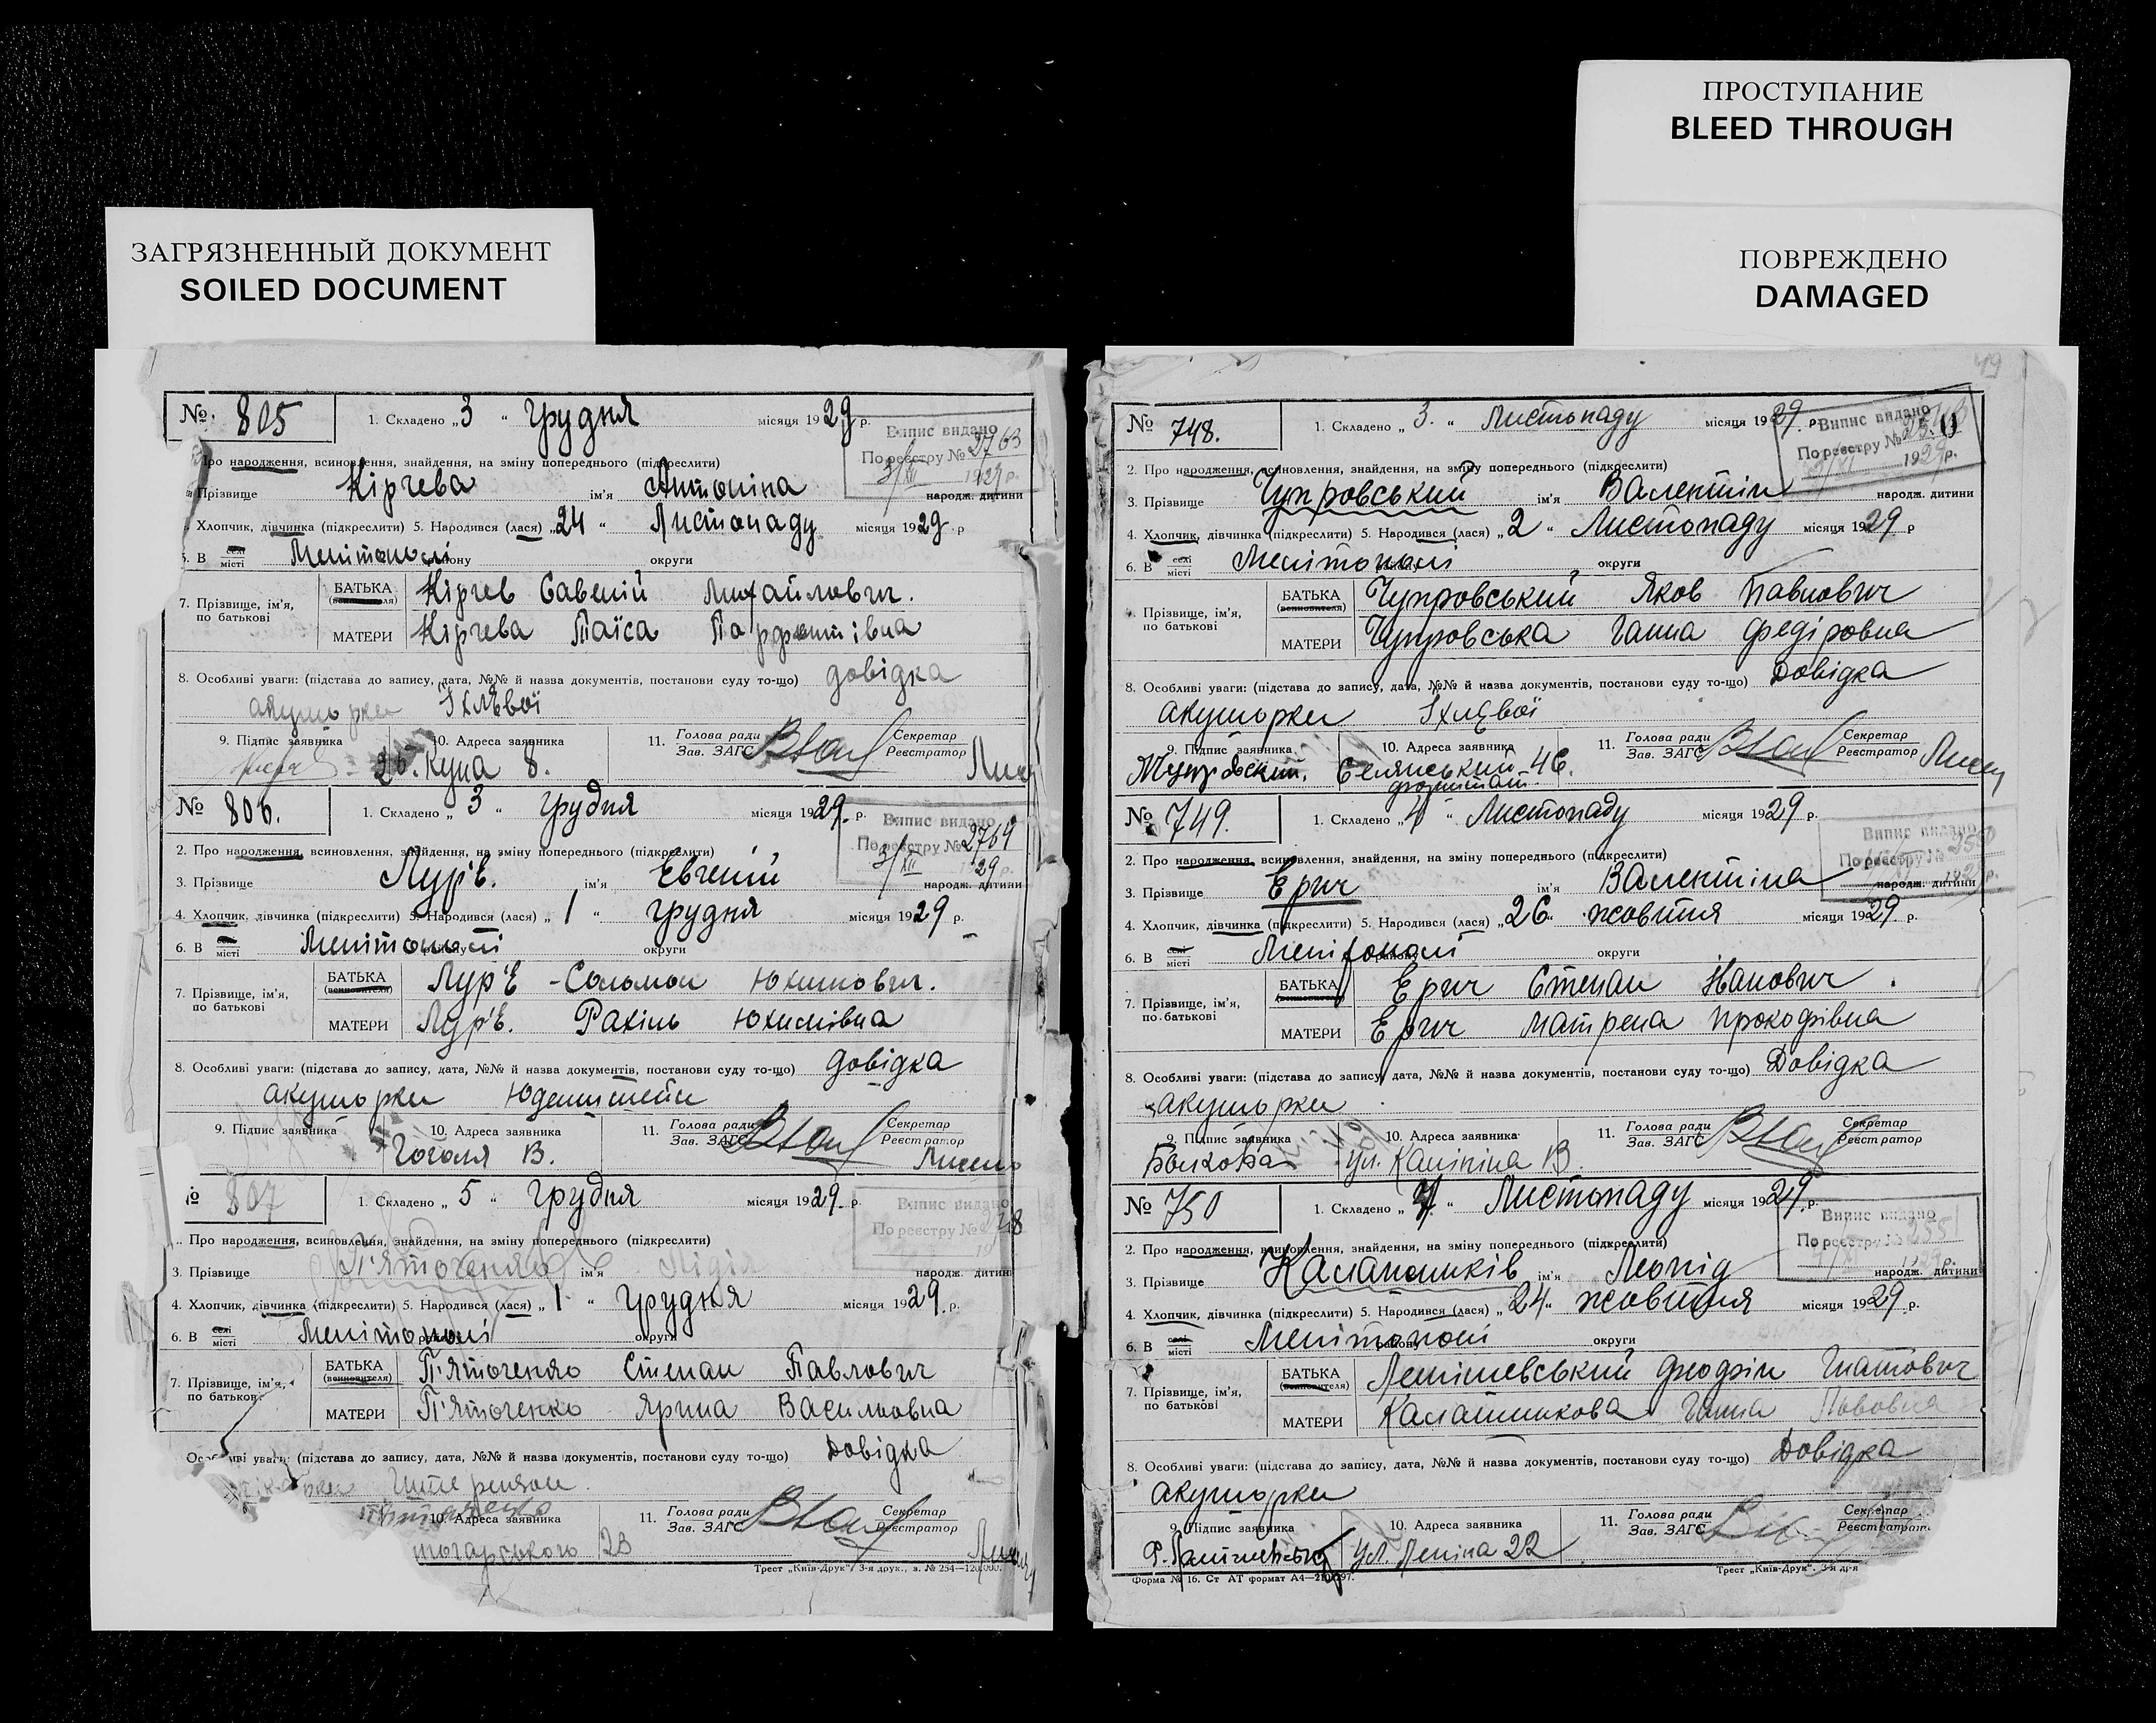 ЗАГРЯЗНЕННЫЙ ДОКУМЕНТ
SOILED DOCUMENT
ПРОСТУПАНИЕ
BLEED THROUGH
ПОВРЕЖДЕНО
DAMAGED
№ 805 1. Складено „3" Грудня місяця 1929 р.
Випис видано
По реєстру № 2763
3/XII 1929 р.
Про народження, всиновлення, знайдення, на зміну попереднього (підкреслити)
Прізвище Кірчева ім'я Антоніна народж. дитини
Хлопчик, дівчинка (підкреслити) 5. Народився (лася) „24" Листопаду місяця 1929 р
В селі місті Мелітополі району округи
7. Прізвище, ім'я, по батькові
БАТЬКА (всиновителя) Кірчев Савелій Михайлович.
МАТЕРИ Кірчева Таїса Парфентіівна
8. Особливі уваги: (підстава до запису, дата, №№ й назва документів, постанови суду то-що) довідка
акушорки Іхлєвої
9. Підпис заявника 10. Адреса заявника 11. Голова ради Зав. ЗАГС Секретар Реєстратор
Купа 8.
№ 806. 1. Складено „3" Грудня місяця 1929 р.
Випис видано
По реєстру № 2764
3/XII 1929 р.
2. Про народження, всиновлення, знайдення, на зміну попереднього (підкреслити)
3. Прізвище Лур'є. ім'я Евгеній народж. дитини
4. Хлопчик, дівчинка (підкреслити) 5. Народився (лася) „1" грудня місяця 1929 р.
6. В селі місті Мелітополі району округи
7. Прізвище, ім'я, по батькові
БАТЬКА (всиновителя) Лур'Е - Соломон Юхимович.
МАТЕРИ Лур'Е. Рахіль Юхимівна
8. Особливі уваги: (підстава до запису, дата, №№ й назва документів, постанови суду то-що) довідка
акушорки Юденштейн
9. Підпис заявника 10. Адреса заявника 11. Голова ради Зав. ЗАГС Секретар Реєстратор
Гоголя 13.
№ 807 1. Складено „5" Грудня місяця 1929 р.
Випис видано
По реєстру №
Про народження, всиновлення, знайдення, на зміну попереднього (підкреслити)
3. Прізвище П'яточенко ім'я Лідія народж. дитини
4. Хлопчик, дівчинка (підкреслити) 5. Народився (лася) „1" Грудня місяця 1929 р.
6. В селі місті Мелітополі району округи
7. Прізвище, ім'я, по батькові
БАТЬКА (всиновителя) П'яточенко Степан Павлович
МАТЕРИ П'яточенко Ярина Васильовна
Особливі уваги: (підстава до запису, дата, №№ й назва документів, постанови суду то-що) Довідка
10. Адреса заявника 11. Голова ради Зав. ЗАГС Секретар Реєстратор
Трест „Київ-Друк", 3-я друк., з. № 254—120.000.
№ 748. 1. Складено „3." Листопаду місяця 1929 р.
Випис видано
По реєстру №
1929 р.
2. Про народження, всиновлення, знайдення, на зміну попереднього (підкреслити)
3. Прізвище Чупровський ім'я Валентін народж. дитини
4. Хлопчик, дівчинка (підкреслити) 5. Народився (лася) „2" Листопаду місяця 1929 р
6. В селі місті Мелітополі округи
Прізвище, ім'я, по батькові
БАТЬКА (всиновителя) Чупровський Яков Павлович
МАТЕРИ Чупровська Ганна Федіровна
8. Особливі уваги: (підстава до запису, дата, №№ й назва документів, постанови суду то-що) Довідка
акушорки Іхлєвої
9. Підпис заявника 10. Адреса заявника 11. Голова ради Зав. ЗАГС Секретар Реєстратор
Селянський 46.
№ 749. 1. Складено „4" Листопаду місяця 1929 р.
Випис видано
По реєстру №
2. Про народження, всиновлення, знайдення, на зміну попереднього (підкреслити)
3. Прізвище Ерич ім'я Валентіна народж. дитини
4. Хлопчик, дівчинка (підкреслити) 5. Народився (лася) „26" жовтня місяця 1929 р.
6. В селі місті Мелітополі району округи
7. Прізвище, ім'я, по батькові
БАТЬКА Ерич Степан Іванович
МАТЕРИ Ерич Матрена Прокофівна
8. Особливі уваги: (підстава до запису, дата, №№ й назва документів, постанови суду то-що) Довідка
акушорки
9. Підпис заявника 10. Адреса заявника 11. Голова ради Зав. ЗАГС Секретар Реєстратор
ул. Калініна 13.
№ 750 1. Складено „4" Листопаду місяця 1929 р.
Випис видано
По реєстру №
2. Про народження, всиновлення, знайдення, на зміну попереднього (підкреслити)
3. Прізвище Калашників ім'я Леонід народж. дитини
4. Хлопчик, дівчинка (підкреслити) 5. Народився (лася) „24" жовтня місяця 1929 р.
6. В селі місті Мелітополі району округи
7. Прізвище, ім'я, по батькові
БАТЬКА (всиновителя)
МАТЕРИ Калашникова Ганна Львовна
8. Особливі уваги: (підстава до запису, дата, №№ й назва документів, постанови суду то-що) Довідка
акушорки
9. Підпис заявника 10. Адреса заявника 11. Голова ради Зав. ЗАГС Секретар Реєстратор
ул. Леніна 22
Форма № 16. Ст АТ формат А4—210×297. Трест „Київ-Друк". 3-я др-я